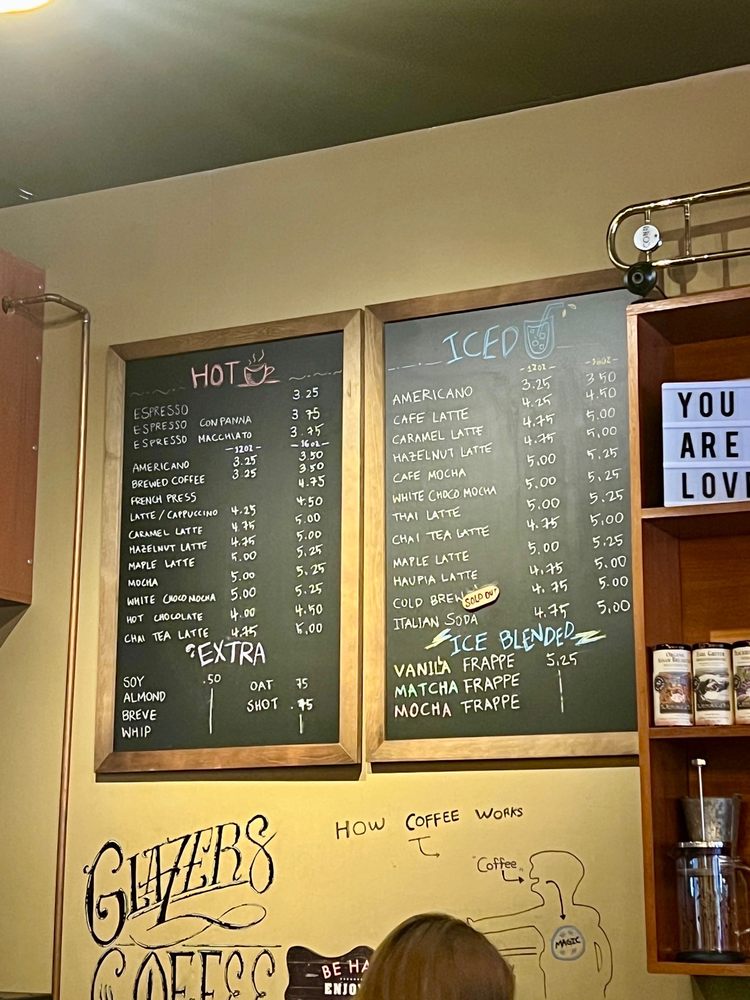 HOT
ESPRESSO 3.25
ESPRESSO CON PANNA 3.75
ESPRESSO MACCHIATO 3.75
-12oz- -16oz-
AMERICANO 3.25 3.50
BREWED COFFEE 3.25 3.50
FRENCH PRESS 4.75
LATTE/CAPPUCCINO 4.25 4.50
CARAMEL LATTE 4.75 5.00
HAZELNUT LATTE 4.75 5.00
MAPLE LATTE 5.00 5.25
MOCHA 5.00 5.25
WHITE CHOCO MOCHA 5.00 5.25
HOT CHOCOLATE 4.00 4.50
CHAI TEA LATTE 4.75 5.00
EXTRA
SOY .50 OAT 75
ALMOND SHOT .75
BREVE
WHIP
ICED
-12oz- -16oz-
AMERICANO 3.25 3.50
CAFE LATTE 4.25 4.50
CARAMEL LATTE 4.75 5.00
HAZELNUT LATTE 4.75 5.00
CAFE MOCHA 5.00 5.25
WHITE CHOCO MOCHA 5.00 5.25
THAI LATTE 5.00 5.25
CHAI TEA LATTE 4.75 5.00
MAPLE LATTE 5.00 5.25
HAUPIA LATTE 4.75 5.00
COLD BREW SOLD OUT 4.75 5.00
ITALIAN SODA 4.75 5.00
ICE BLENDED
VANILA FRAPPE 5.25
MATCHA FRAPPE
MOCHA FRAPPE
YOU
ARE
LOVE
GLAZERS
COFFEE
HOW COFFEE WORKS
Coffee
MAGIC
BE HA
ENJOY